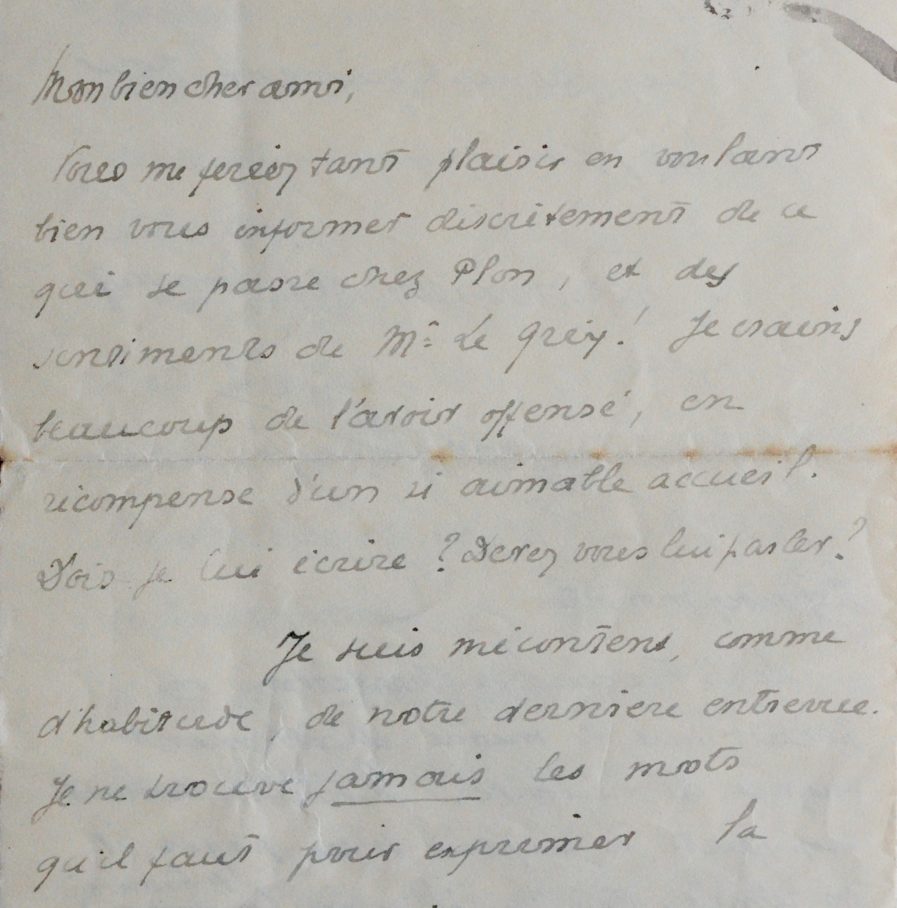 Mon bien cher ami,
Vous me feriez tant plaisir en voulant
bien vous informer discrètement de ce
qui se passe chez Plon, et des
sentiments de Mr Le Grix ! Je crains
beaucoup de l'avoir offensé, en
récompense d'un si aimable accueil.
Dois je lui écrire ? Devez vous lui parler ?
Je suis mécontent, comme
d'habitude, de notre dernière entrevue.
Je ne trouve jamais les mots
qu'il faut pour exprimer la